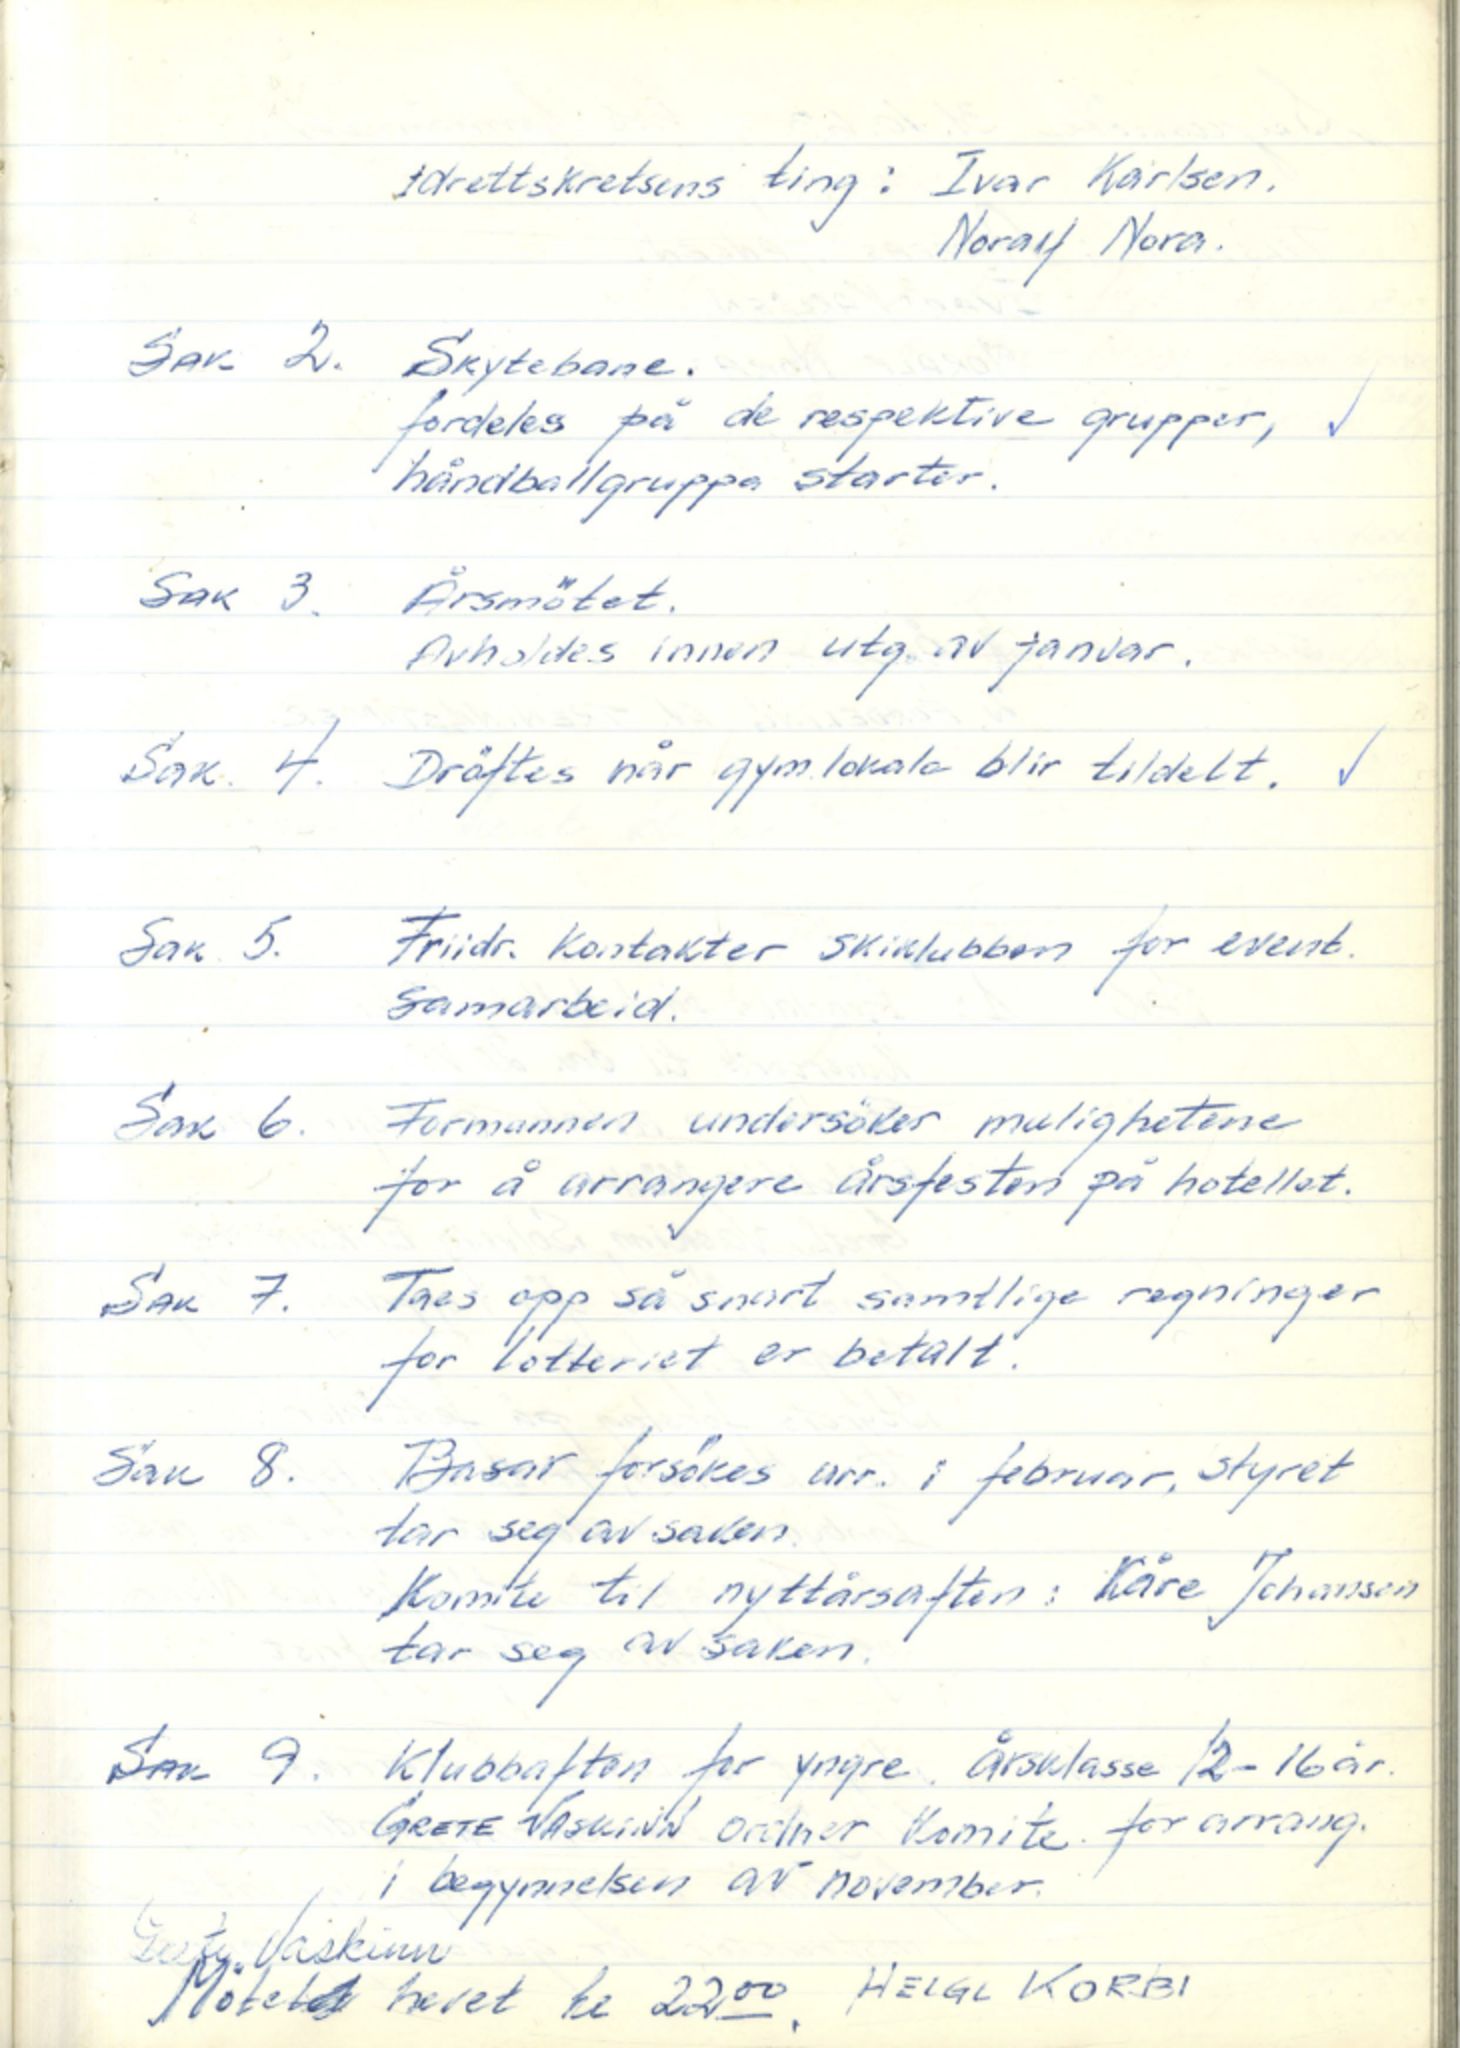 Idrettskretsens ting: Ivar Karlsen.
Noralf Nora.
Sak 2. Skytebane.
fordeles på de respektive grupper,
håndballgruppa starter.
Sak 3. Årsmötet.
Avholdes innen utg. av januar.
Sak 4. Dröftes når gym.lokale blir tildelt.
Sak 5. Friidr. kontakter skiklubben for event.
samarbeid.
Sak 6. Formannen undersöker mulighetene
for å arrangere årsfesten på hotellet.
Sak 7. Taes opp så snart samtlige regninger
for lotteriet er betalt.
Sak 8. Basar forsökes arr. i februar, styret
tar seg av saken.
Komite til nyttårsaften: Kåre Johansen
tar seg av saken.
Sak 9. Klubbaften for yngre. Årsklasse 12-16 år.
GRETE VASKINN ordner komite for arrang.
i begynnelsen av november.
Vaskinn
Mötet hevet kl 22⁰⁰. HELGE KORBI